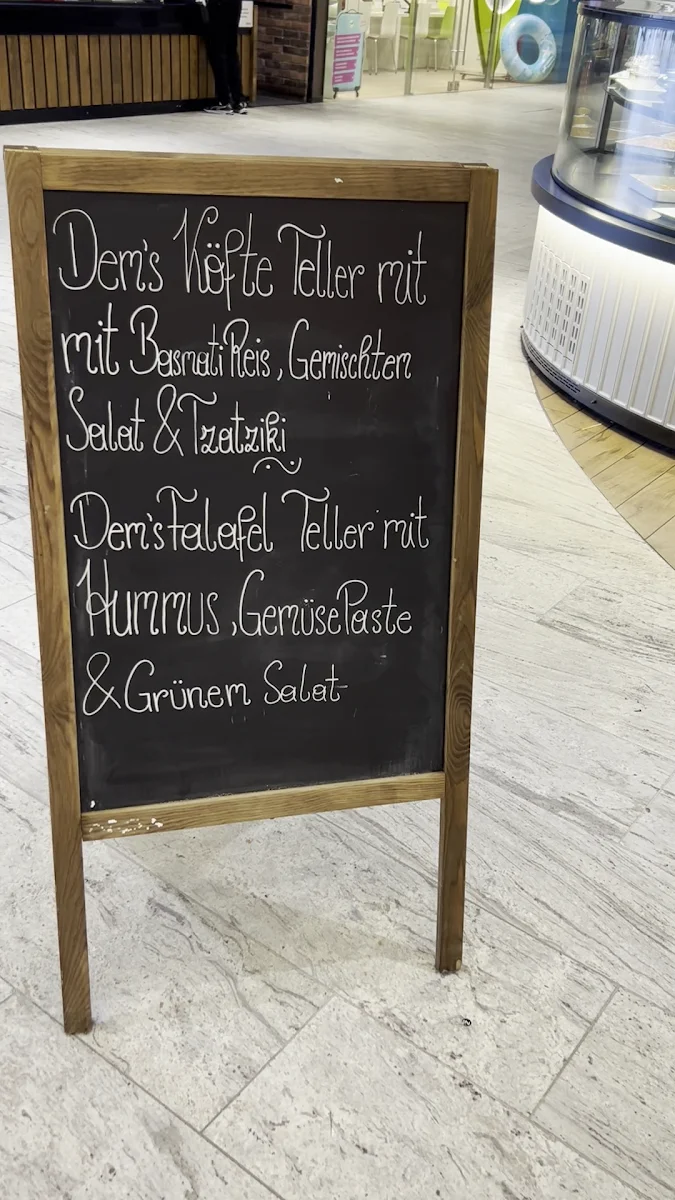 Dem's Köfte Teller mit
mit Basmati Reis, Gemischtem
Salat & Tzatziki
Dem's Falafel Teller mit
Hummus, Gemüse Paste
& Grünem Salat